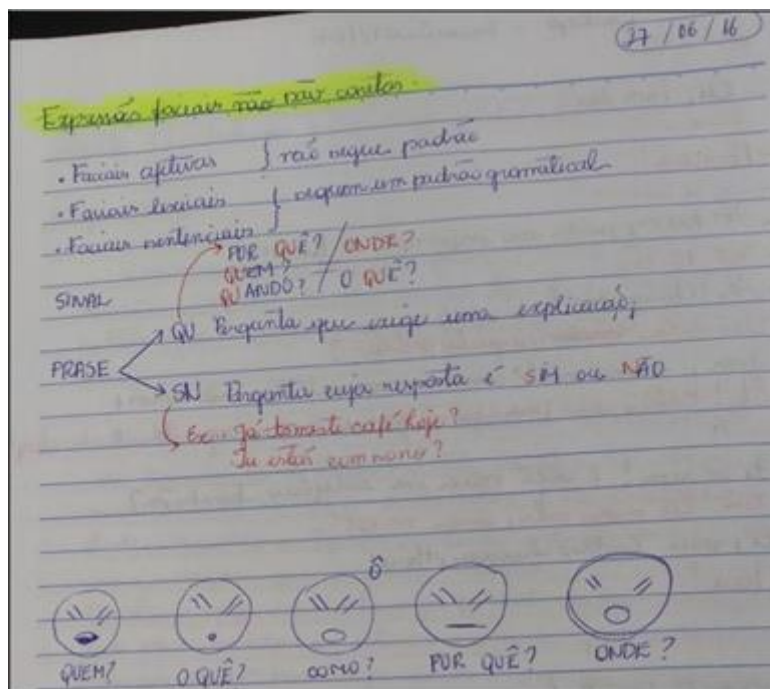 27/06/16
Expressões faciais não são caretas.
• Faciais afetivas } não segue padrão
• Faciais lexicais } seguem um padrão gramatical
• Faciais sentenciais
POR QUÊ? / ONDE?
QUEM? /
QUANDO? / O QUÊ?
SINAL
QU Pergunta que exige uma explicação;
FRASE
SN Pergunta cuja resposta é SIM ou NÃO
Ex: Já tomaste café hoje?
Tu estás com sono?
Ô
QUEM? O QUÊ? COMO? POR QUÊ? ONDE?